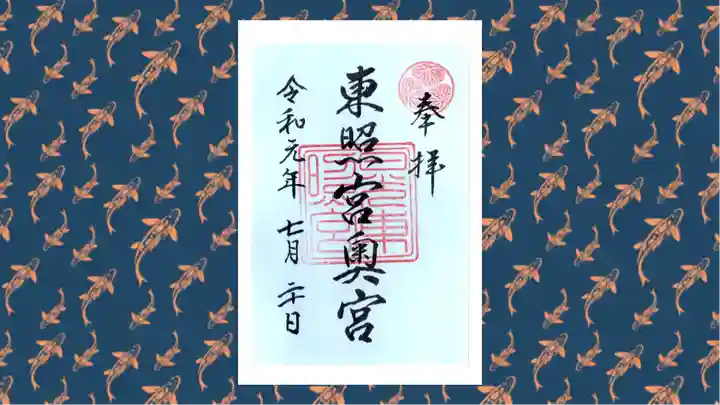 奉拝
東照宮奥宮
令和元年 七月 二十日